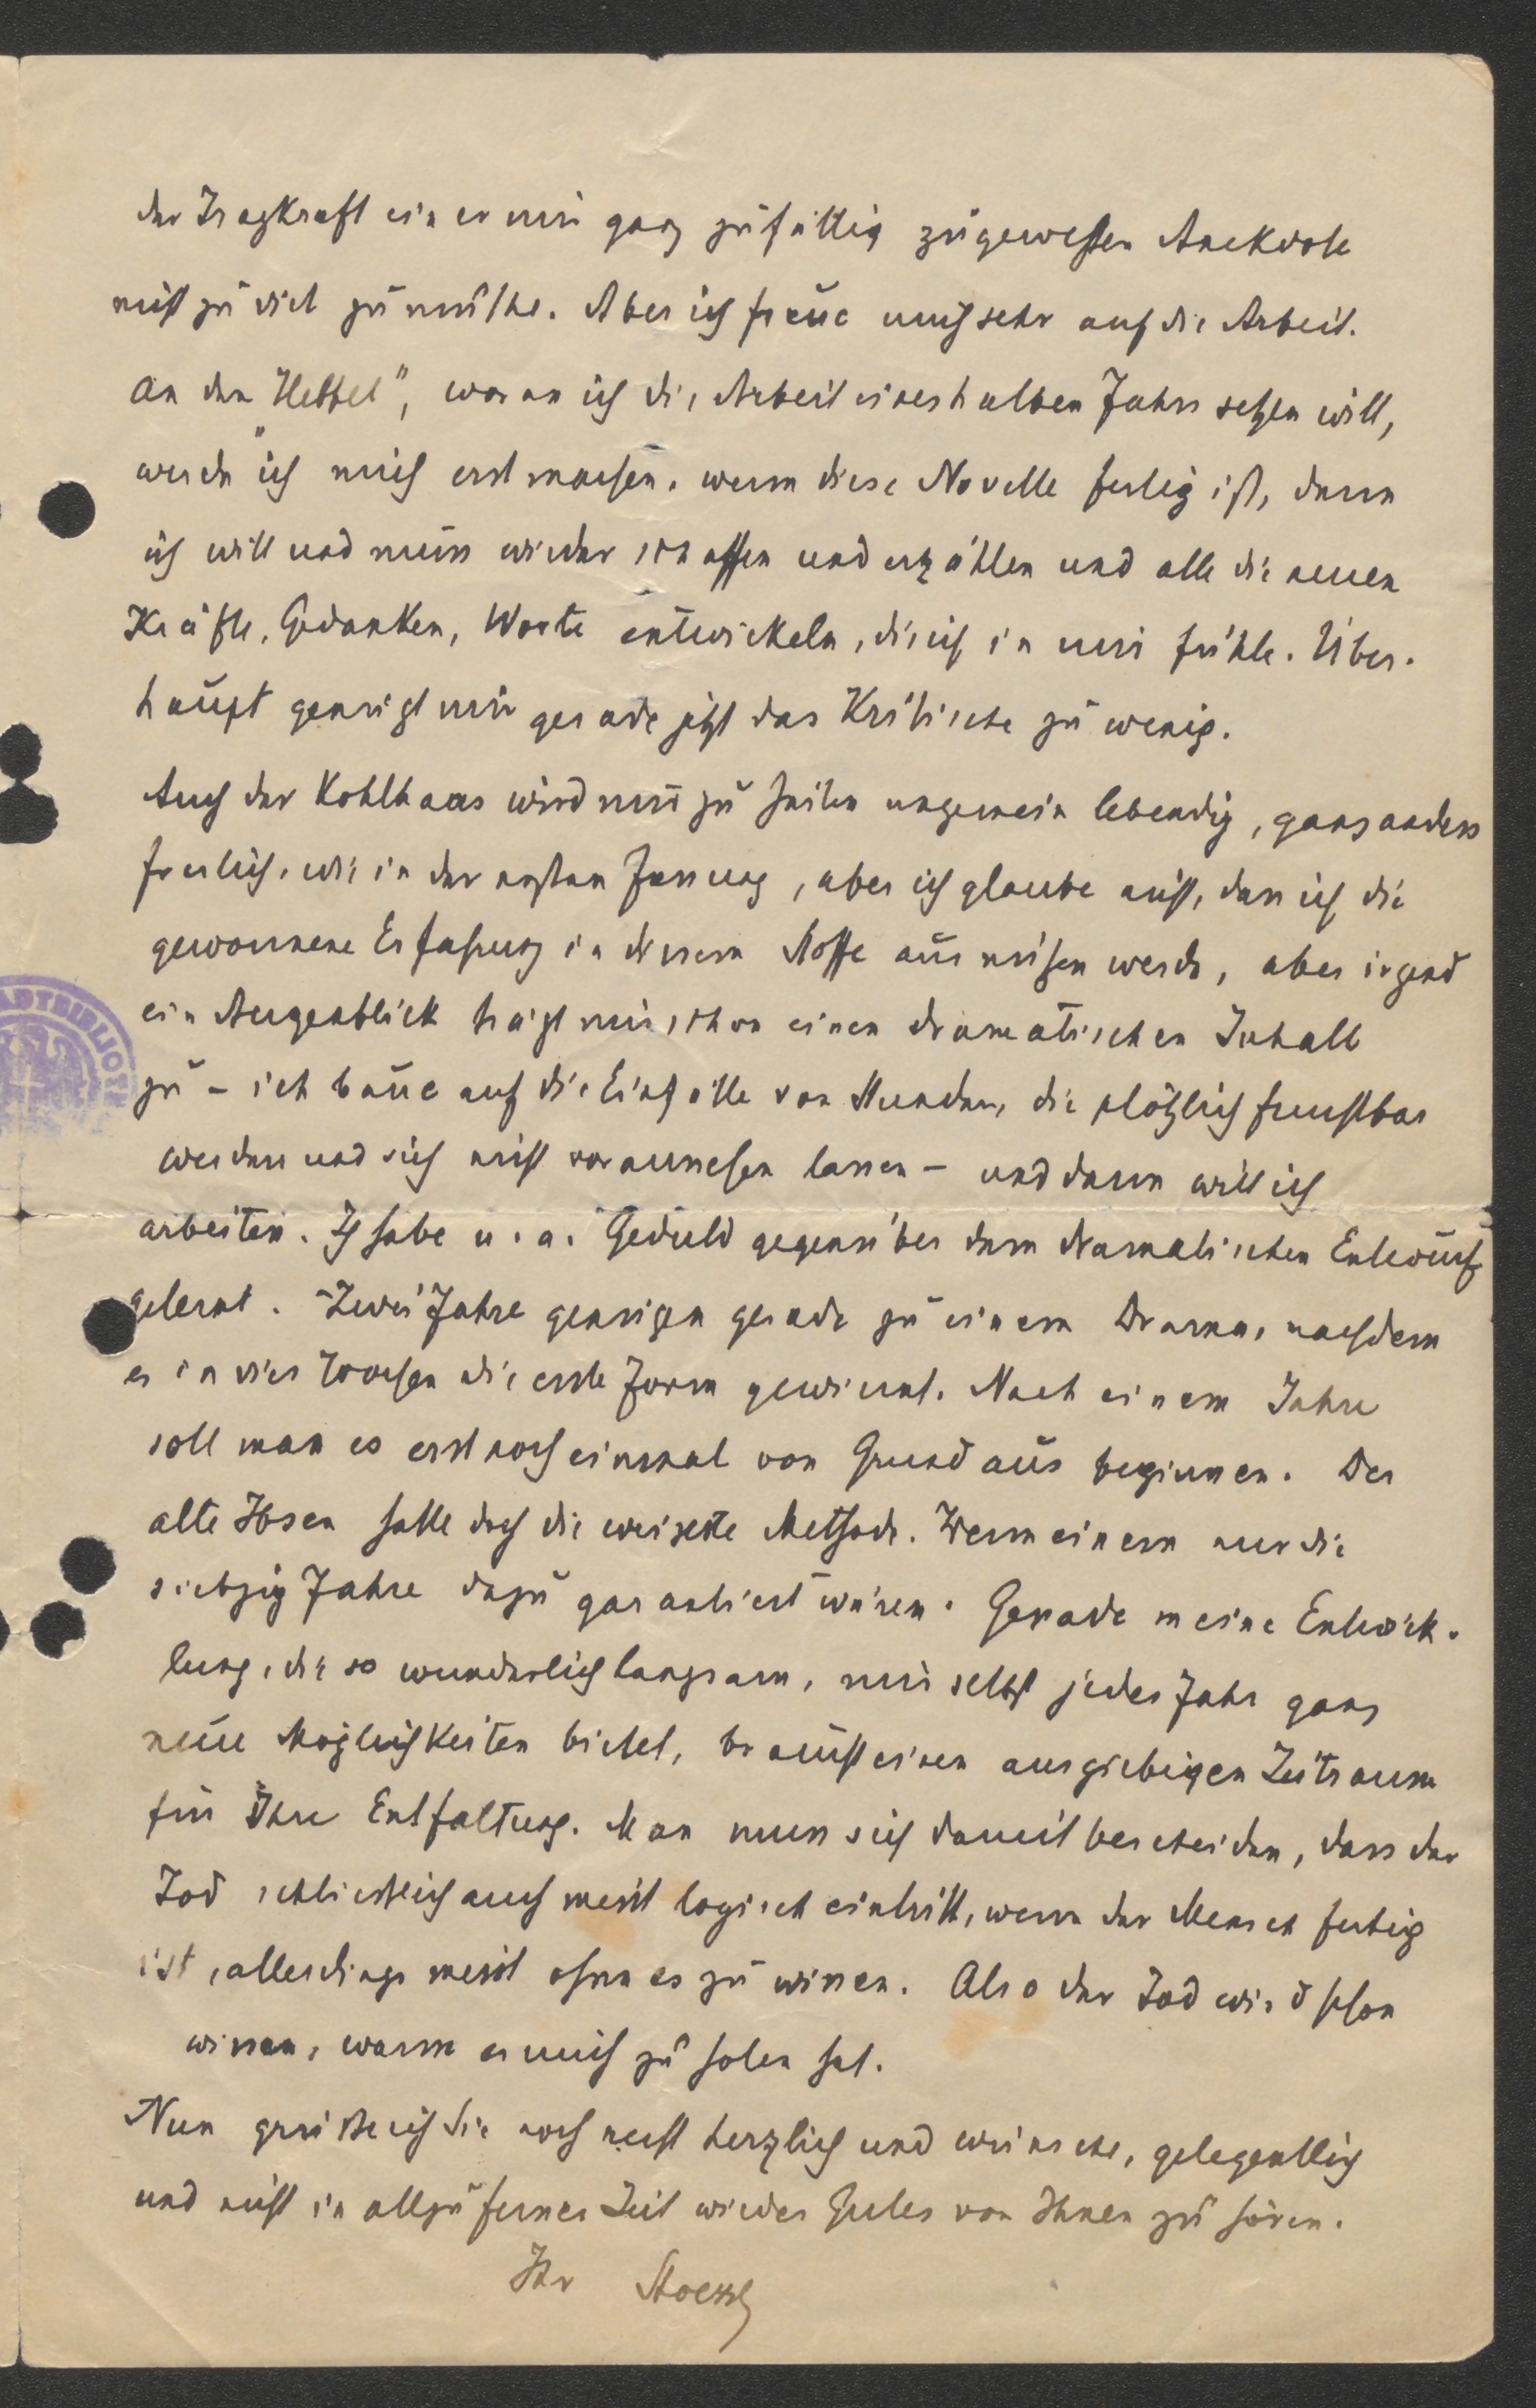 der Tragkraft einer mir ganz zufällig zugewehten Anekdote
nicht zu viel zumuthe. Aber ich freue mich sehr auf die Arbeit.
An den "Hebbel", woran ich die Arbeit eines halben Jahrs setzen will,
werde ich mich erst machen, wenn diese Novelle fertig ist, denn
ich will und muss wieder schaffen und erzählen und alle die neuen
Kräfte, Gedanken, Worte entwickeln, die ich in mir fühle. Über-
haupt genügt mir gerade jetzt das Kritische zu wenig.
Auch der Kohlhaas wird mir zu Zeiten ungemein lebendig, ganz anders
freilich, wie in der ersten Fassung, aber ich glaube nicht, dass ich die
gewonnene Erfahrung in diesem Stoffe ausnützen werde, aber irgend
ein Augenblick trägt mir schon einen dramatischen Inhalt
zu – ich baue auf die Einfälle von Stunden, die plötzlich fruchtbar
werden und sich nicht voraussehen lassen – und dann will ich
arbeiten. Ich habe u. a. Geduld gegenüber dem dramatischen Entwurf
gelernt. Zwei Jahre genügen gerade zu einem Drama, nachdem
es in vier Wochen die erste Form gewinnt. Nach einem Jahre
soll man es erst noch einmal von Grund aus beginnen. Der
alte Ibsen hatte doch die weiseste Methode. Wenn einem nur die
siebzig Jahre dazu garantiert wären. Gerade meine Entwick-
lung, die so wunderlich langsam, mir selbst jedes Jahr ganz
neue Möglichkeiten bietet, braucht einen ausgiebigen Zeitraum
für ihre Entfaltung. Man muss sich damit bescheiden, dass der
Tod schließlich auch meist logisch eintritt, wenn der Mensch fertig
ist, allerdings meist ohne es zu wissen. Also der Tod wird schon
wissen, wann er mich zu holen hat.
Nun grüße ich Sie noch recht herzlich und wünsche, gelegentlich
und nicht in allzuferner Zeit wieder Gutes von Ihnen zu hören.
Ihr Stoessl
ADTBIBLIOT